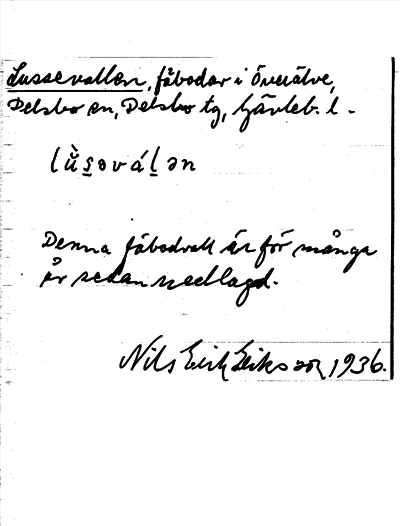 Lussevallen, fäbodar i Överälve,
Delsbo sn, Delsbo tg, Gävleb. l.
lù̌s̱ǝválḻǝn
Denna fäbodvall är för många
år sedan nedlagd.
Nils Erik Eriksson, 1936.